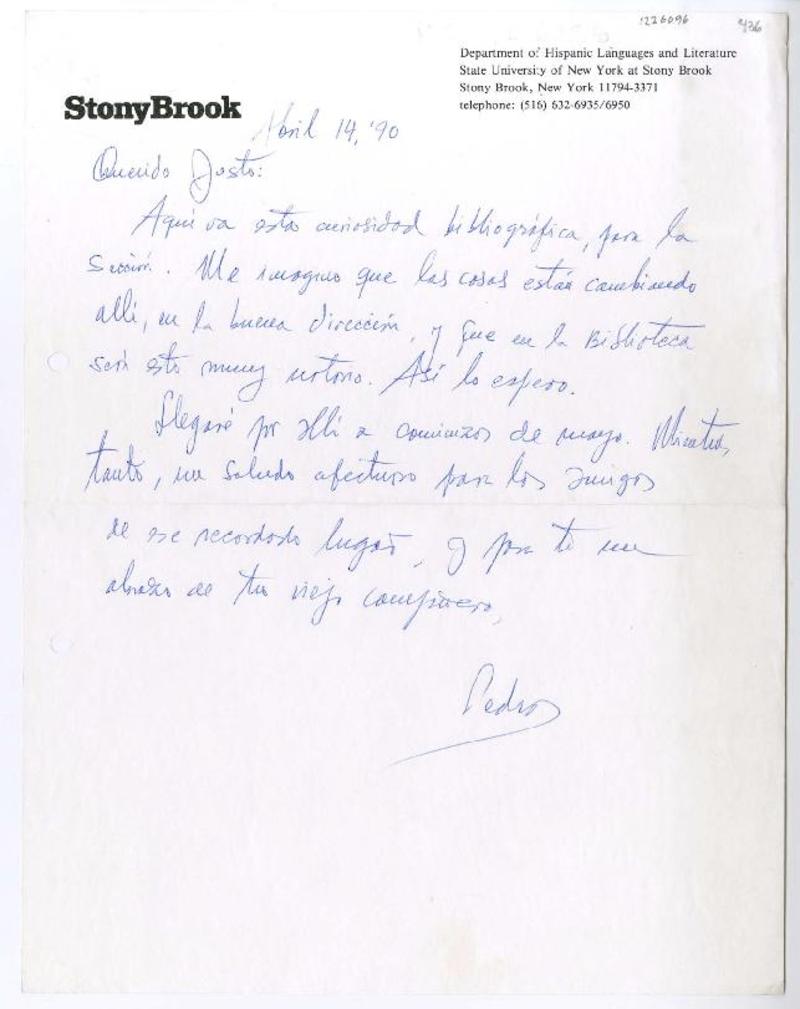 1226096
436
Department of Hispanic Languages and Literature
State University of New York at Stony Brook
Stony Brook, New York 11794-3371
telephone: (516) 632-6935/6950
StonyBrook
Abril 14, '90
Querido Justo:
Aquí va esta curiosidad bibliográfica, para la
Sección. Me imagino que las cosas están cambiando
allí, en la buena dirección, y que en la Biblioteca
será esto muy notorio. Así lo espero.
Llegaré por allí a comienzos de mayo. Mientras
tanto, un saludo afectuoso para los amigos
de ese recordado lugar, y para ti un
abrazo de tu viejo compañero,
Pedro